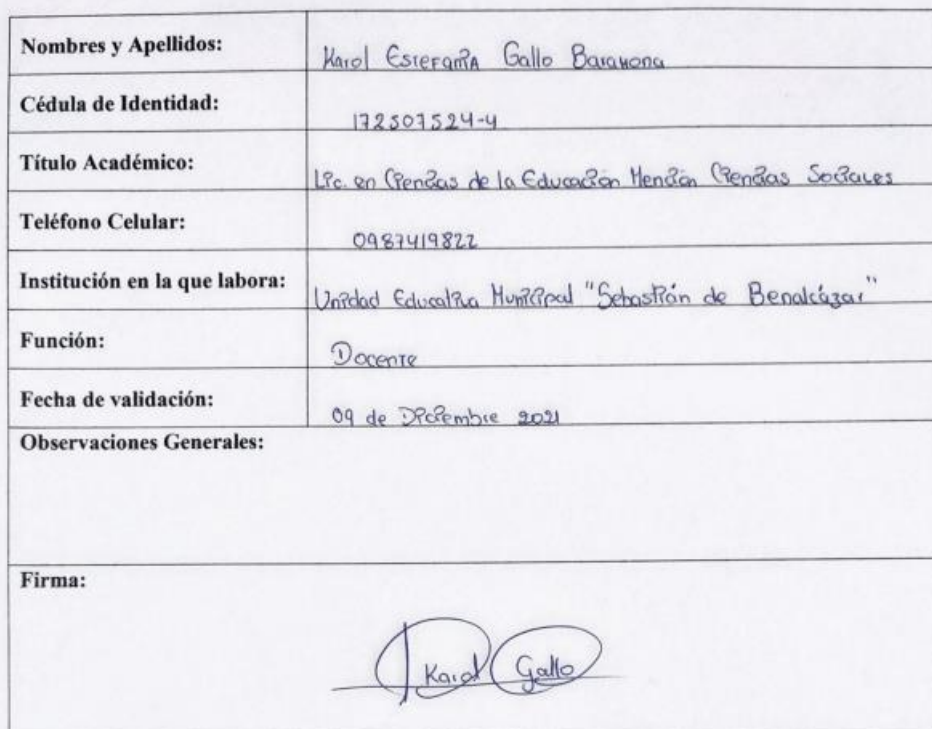 Nombres y Apellidos: Karol Estefanía Gallo Barahona
Cédula de Identidad: 172507524-4
Título Académico: Lic. en Ciencias de la Educación Mención Ciencias Sociales
Teléfono Celular: 0987419822
Institución en la que labora: Unidad Educativa Municipal "Sebastián de Benalcázar"
Función: Docente
Fecha de validación: 09 de Diciembre 2021
Observaciones Generales:
Firma:
Karol Gallo